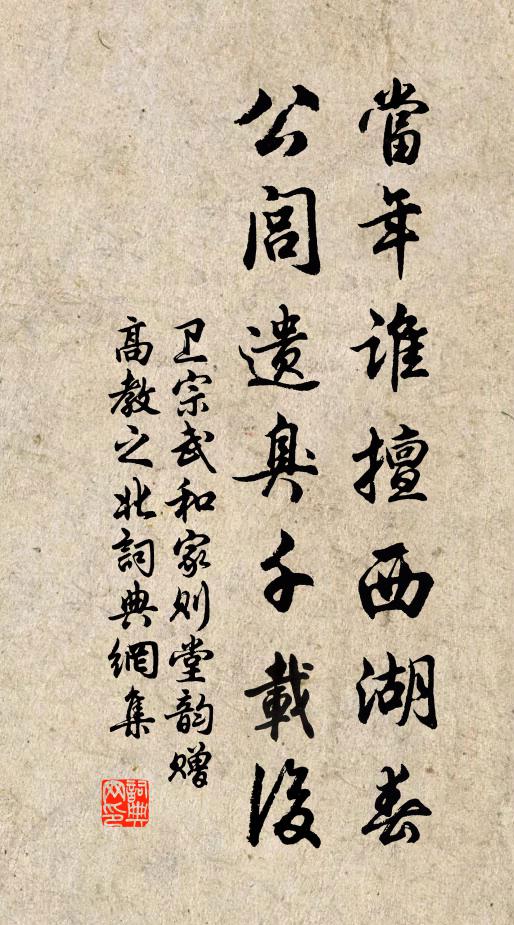 當年誰擅西湖春
公闾遗臭千載後
卫宗武和家则堂韵赠
高教之北詞典網集
詞典网印